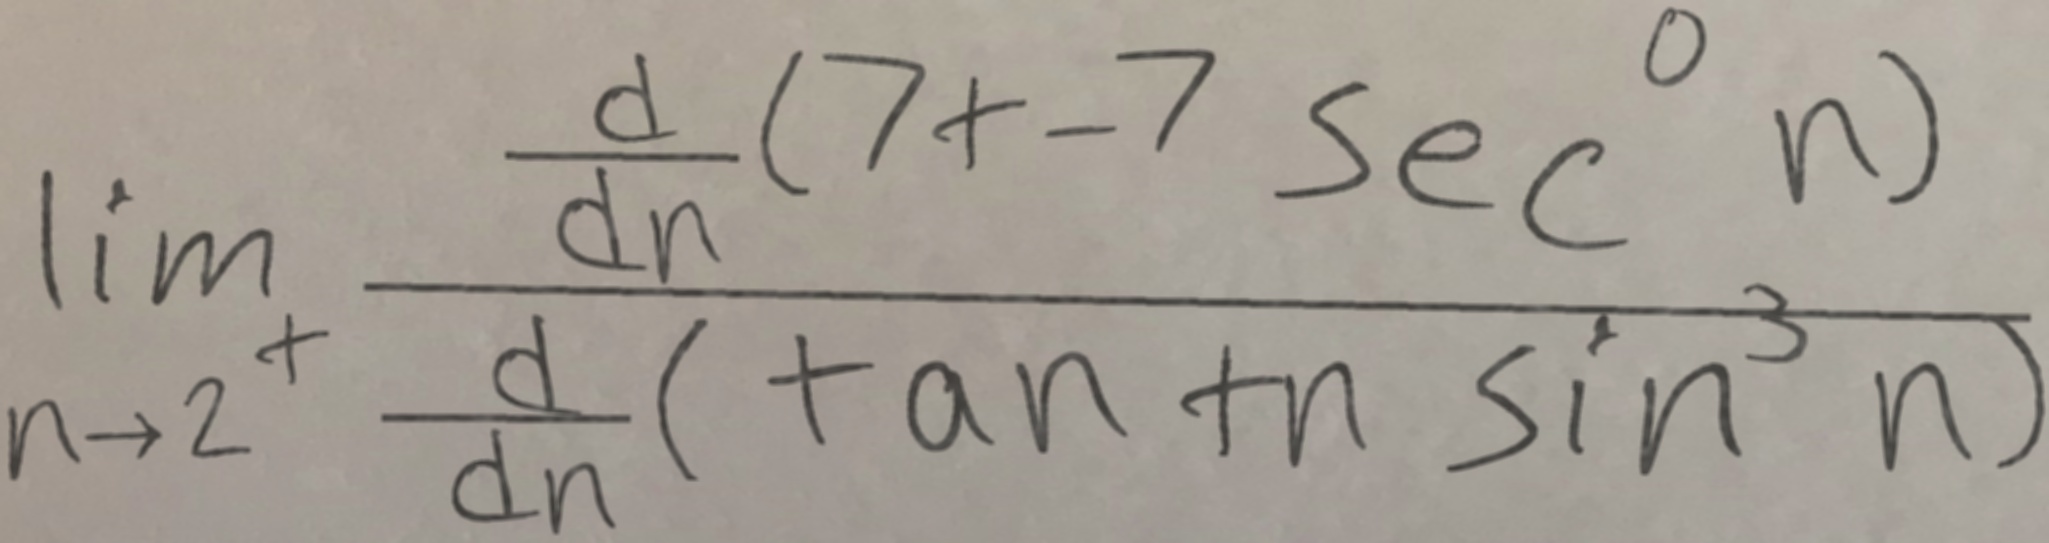 lim n→2⁺ \frac{\frac{d}{dn}(7+-7 sec^0 n)}{\frac{d}{dn}(tan+n sin^3 n)}